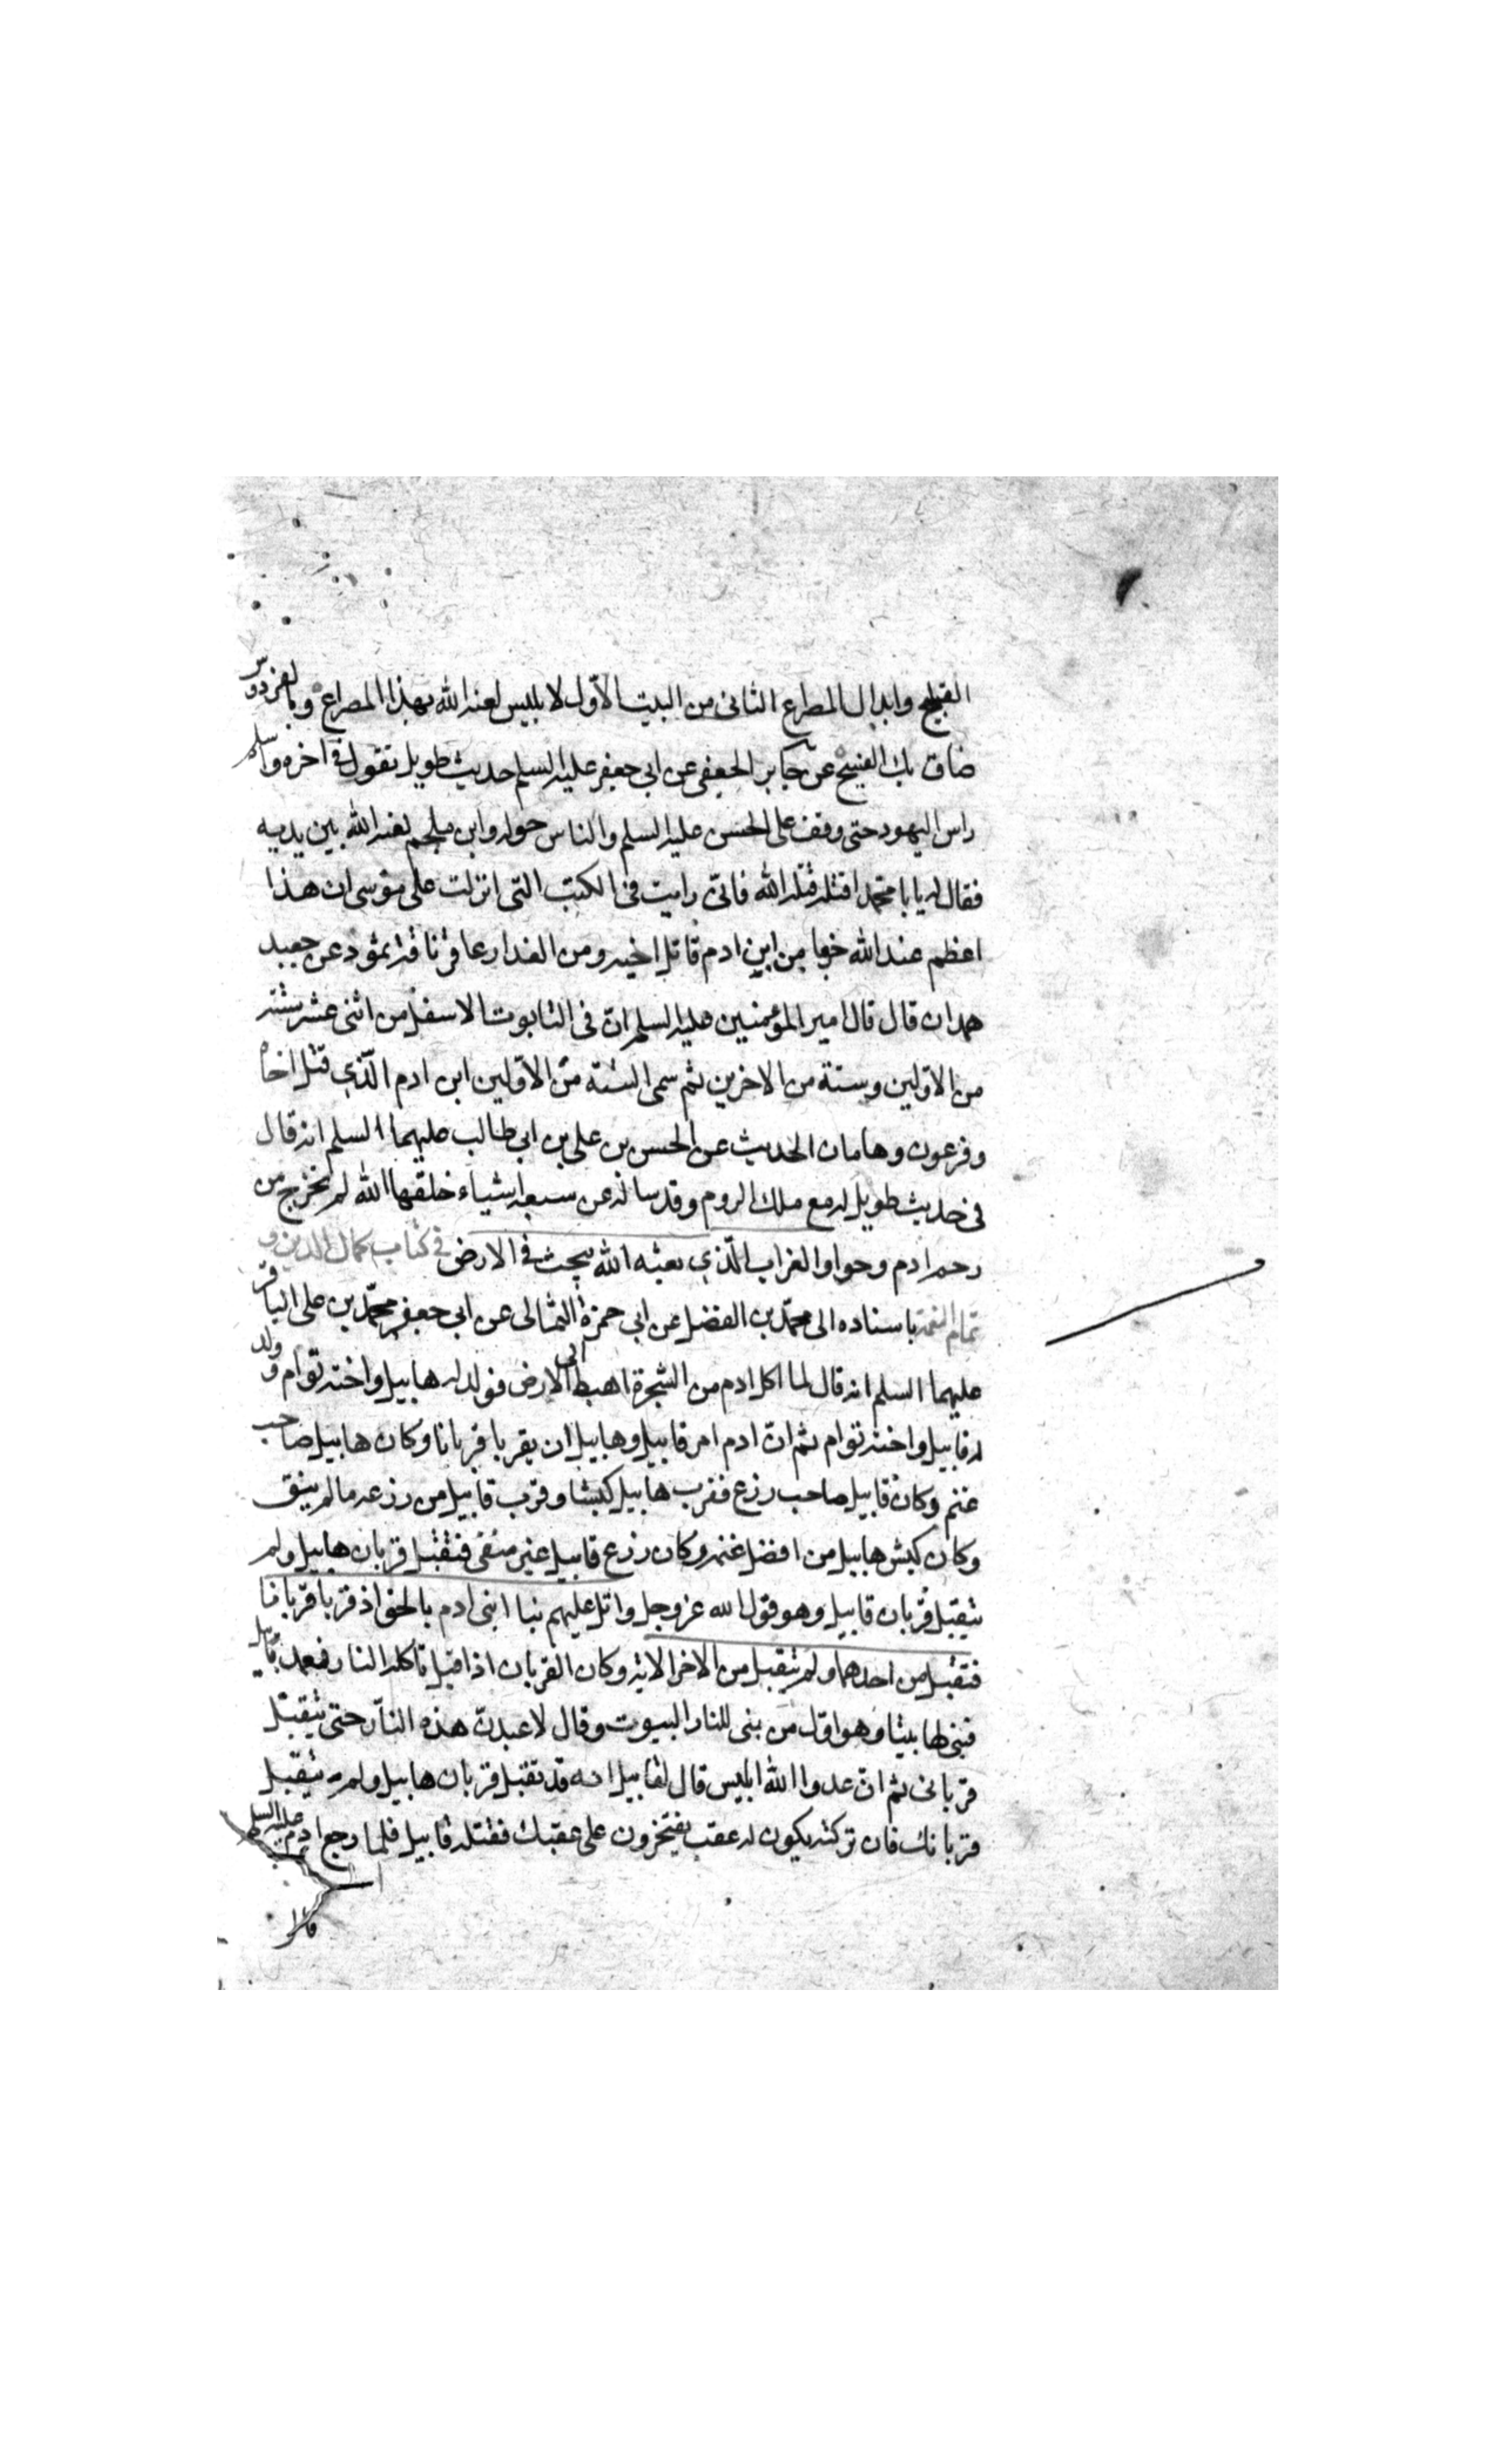 القبيح وابدال المصراع الثانى من البيت الاول لابليس لعنه الله بهذا المصراع وبالفردوس
ضاق بك الفسيح عن جابر الجعفى عن ابى جعفر عليه السلم حديث طويل تقول فى اخره واسلم
راس اليهود حتى وقف على الحسن عليه السلم والناس حوله وابن ملجم لعنه الله بين يديه
فقال له يا با محمد اقتله قتله الله فانى رايت فى الكتب التى انزلت على موسى ان هذا
اعظم عند الله جرما من ابن ادم قاتل اخيه ومن الغدار عاقر ناقة ثمود عن جعيد
همدان قال قال امير المؤمنين عليه السلم ان فى التابوت الاسفل من اثنى عشر ستة
من الاولين وستة من الاخرين ثم سمى الستة من الاولين ابن ادم الذى قتل اخاه
وفرعون وهامان الحديث عن الحسن بن على بن ابى طالب عليهما السلم انه قال
فى حديث طويل له مع ملك الروم وقد ساله عن سبعة اشياء خلقها الله لم تخرج من
رحم ادم وحوا والغراب الذى بعثه الله يبحث فى الارض فى كتاب كمال الدين و
تمام النعمة باسناده الى محمد بن الفضل عن ابى حمزة الثمالى عن ابى جعفر محمد بن على الباقر
عليهما السلم انه قال لما اكل ادم من الشجرة اهبط الى الارض فولد له هابيل واخته توام وولد
له قابيل واخته توام ثم ان ادم امر قابيل وهابيل ان يقربا قربانا وكان هابيل صاحب
غنم وكان قابيل صاحب زرع فقرب هابيل كبشا وقرب قابيل من زرعه مالم ينق
وكان كبش هابيل من افضل غنمه وكان زرع قابيل غير منقى فتقبل قربان هابيل ولم
يتقبل قربان قابيل وهو قول الله عز وجل واتل عليهم نبا ابنى ادم بالحق اذ قربا قربانا
فتقبل من احدهما ولم يتقبل من الاخر الاية وكان القربان اذا قبل تاكله النار فعمد قابيل
فبنى لها بيتا وهو اول من بنى للنار البيوت وقال لاعبدن هذه النار حتى يتقبل
قربانى ثم ان عدوا الله ابليس قال لقابيل انه قد تقبل قربان هابيل ولم يتقبل
قربانك فان تركته يكون له عقب يفتخرون على عقبك فقتله قابيل فلما رجع ادم عليه السلم